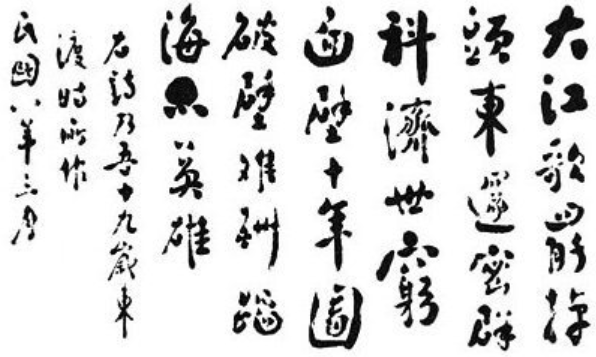 大江歌罷棹
頭東邃密群
科濟世窮
面壁十年圖
破壁難酬蹈
海亦英雄
右詩乃吾十九歲東
渡時所作
民國八年三月